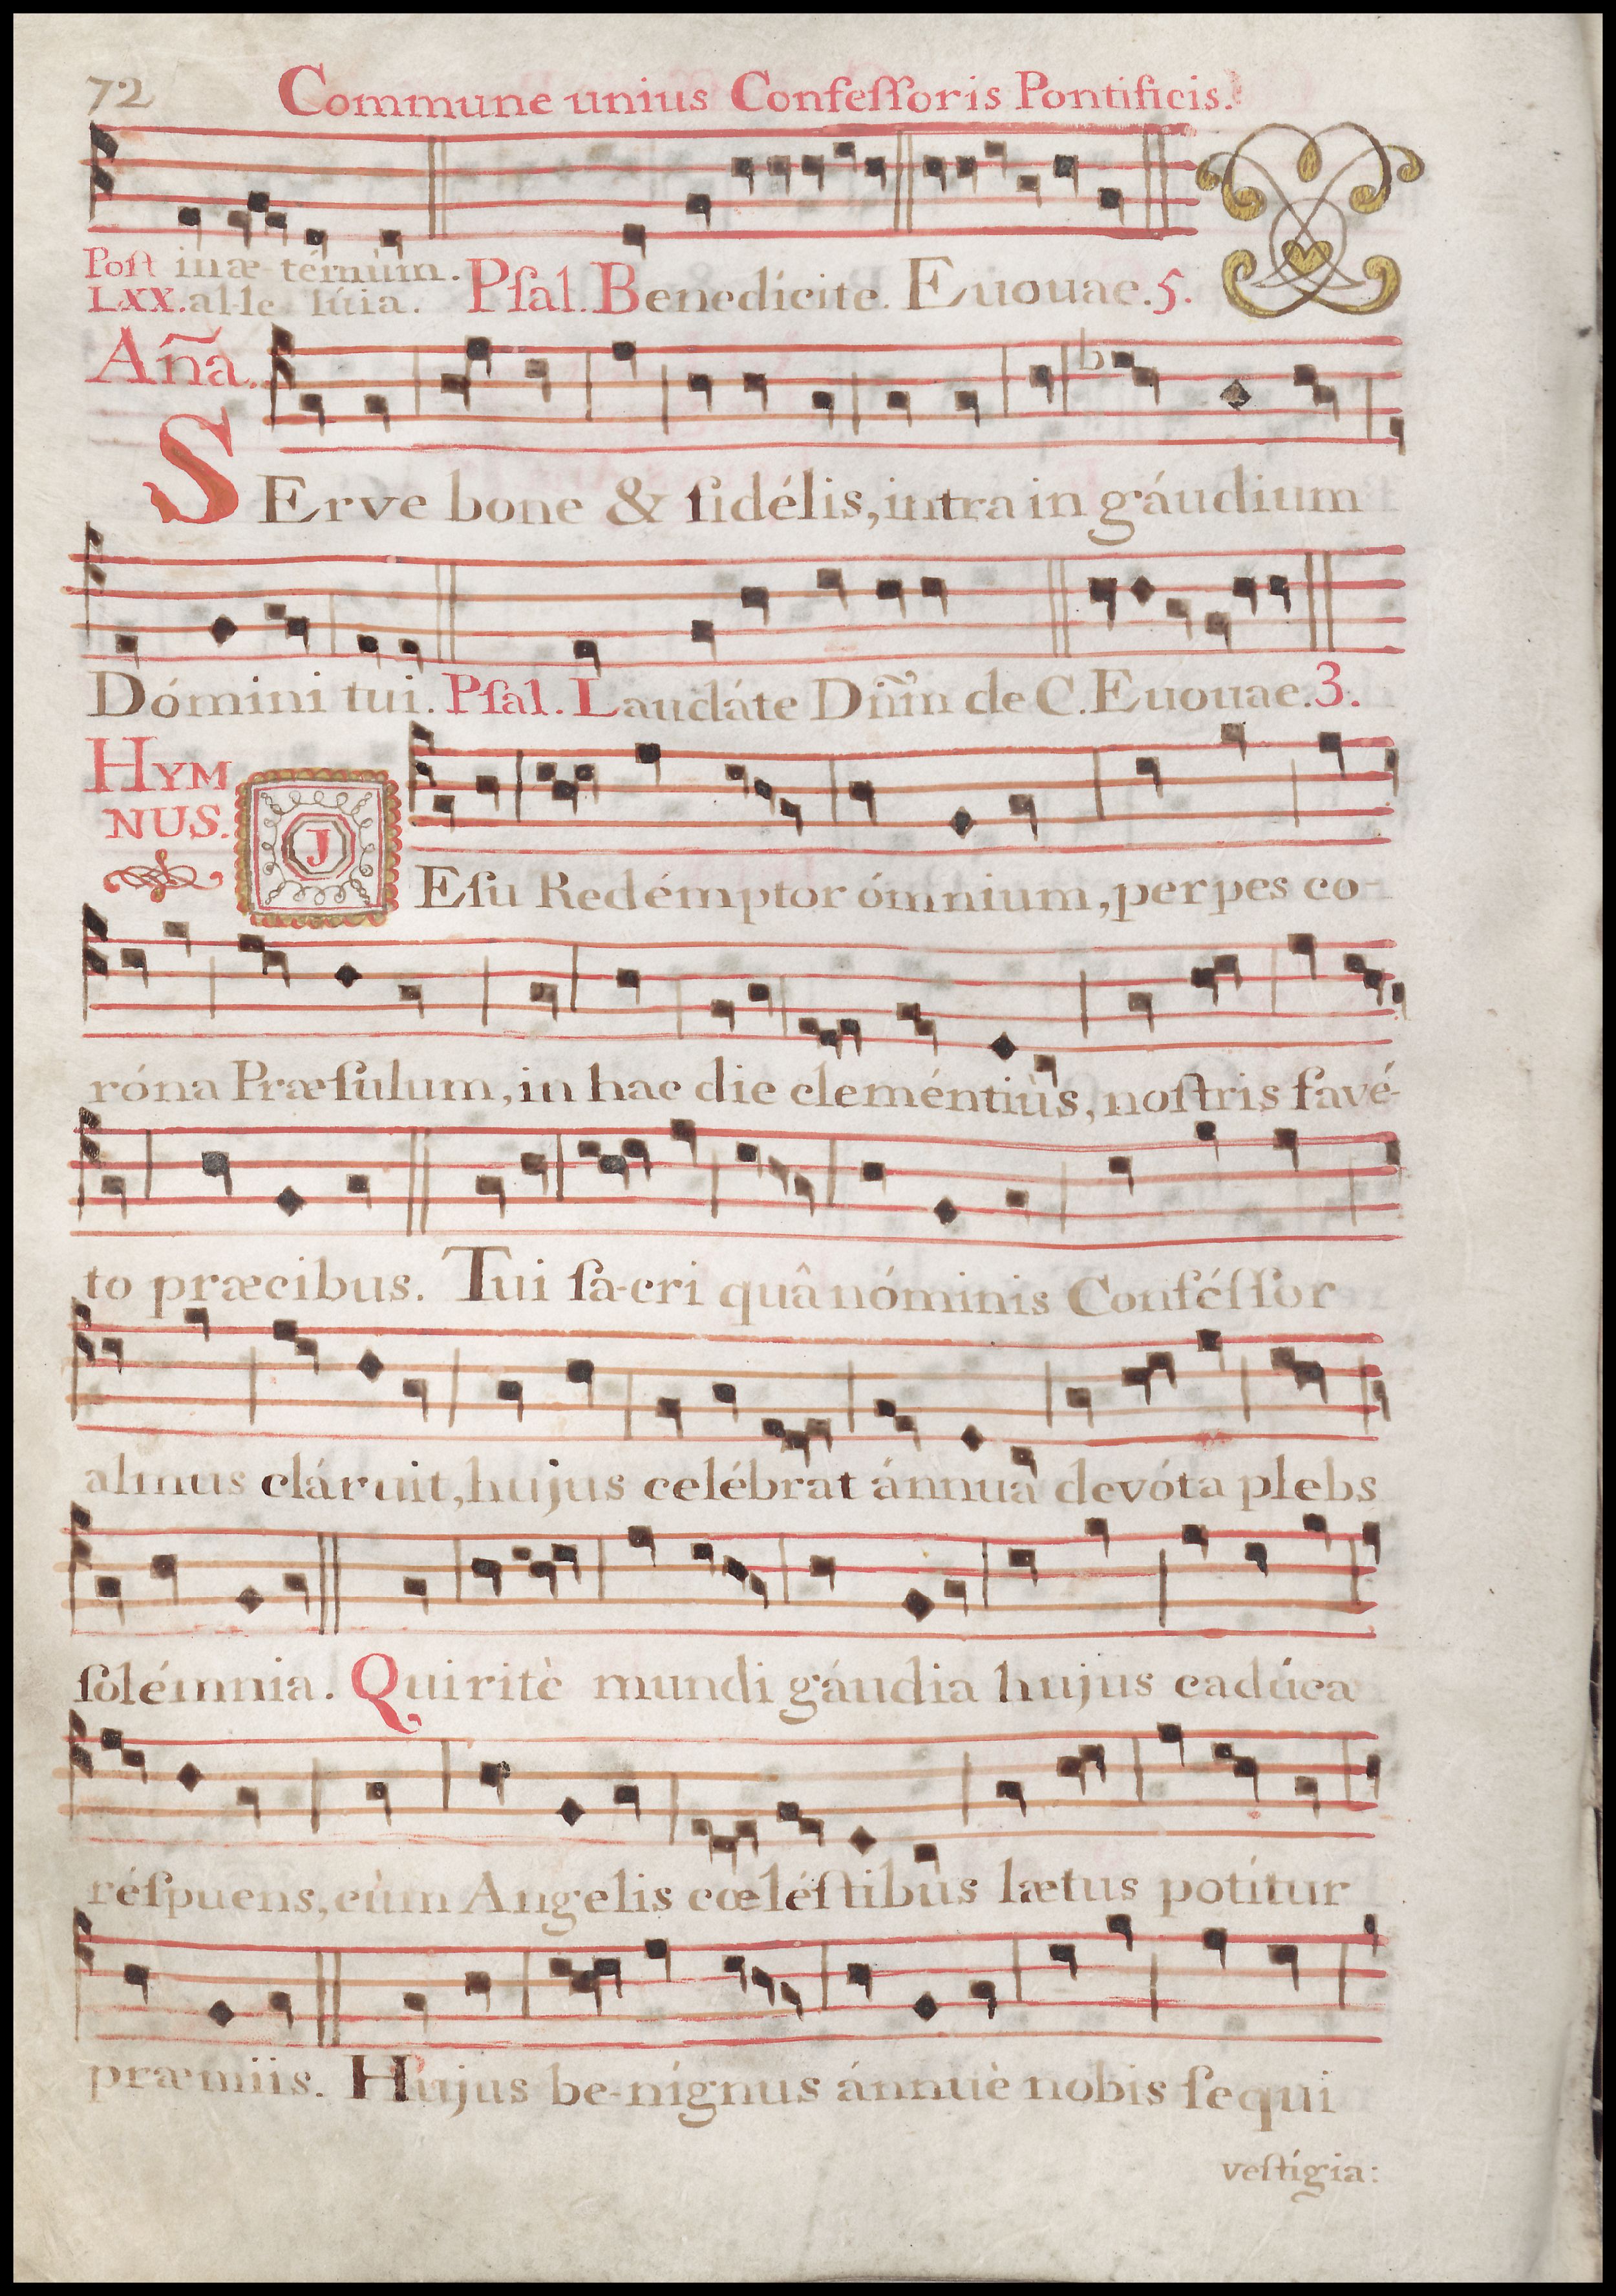 72 Commune unius Confeſſoris Pontificis.
Poſt in æ-térnùm.
LXX. al-le lúia. Pſal. Benedícite. Euouae. 5.
Añã.
SErve bone & fidélis, intra in gáudium
Dómini tui. Pſal. Laudáte Dñm de C. Euouae. 3.
HYM
NUS.
JEſu Redémptor ómnium, perpes co-
róna Præſulum, in hac die cleméntiùs, noſtris favé-
to præcibus. Tui ſa-cri quâ nóminis Conféſſor
almus cláruit, hujus celébrat ánnua devóta plebs
ſolémnia. Qui ritè mundi gáudia hujus cadúca
réſpuens, cùm Angelis cœléſtibus lætus potítur
præmiis. Hujus be-nígnus ánnuè nobis ſequi
veſtígia: